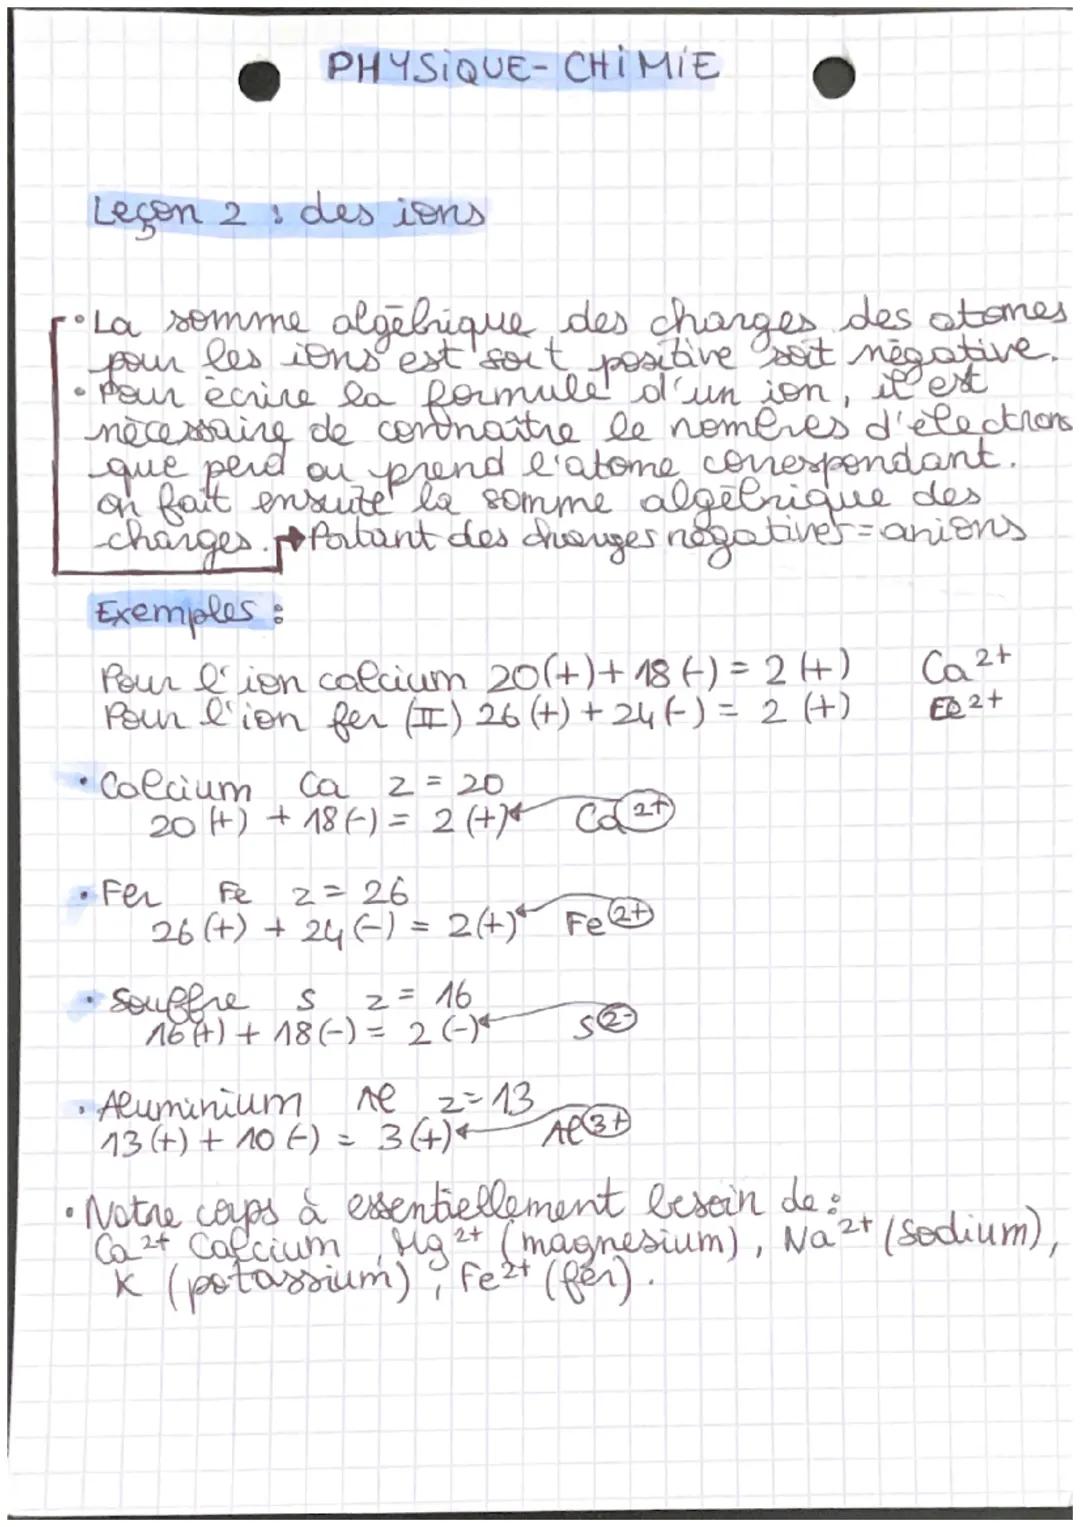 PHYSIQUE-CHIMIE
Leçon 2 : des ions
• La somme algébrique des charges des atomes
pour les ions est soit positive soit négative.
• Pour écrire la formule d'un ion, il est
nécessaire de connaître le nombres d'électrons
que perd ou prend l'atome correspondant.
on fait ensuite la somme algébrique des
charges. → Portant des charges négatives = anions
Exemples :
Pour l'ion calcium 20(+) + 18(-) = 2(+) Ca2+
Pour l'ion fer (II) 26(+) + 24(-) = 2(+) Fe2+
• Calcium Ca z = 20
20(+) + 18(-) = 2(+) Ca2+
• Fer Fe z = 26
26(+) + 24(-) = 2(+) Fe2+
• Souffre S z = 16
16(+) + 18(-) = 2(-) S2-
• Aluminium Al z = 13
13(+) + 10(-) = 3(+) Al3+
• Notre corps à essentiellement besoin de :
Ca2+ Calcium, Mg2+ (magnesium), Na2+ (sodium),
K (potassium), Fe2+ (fer).